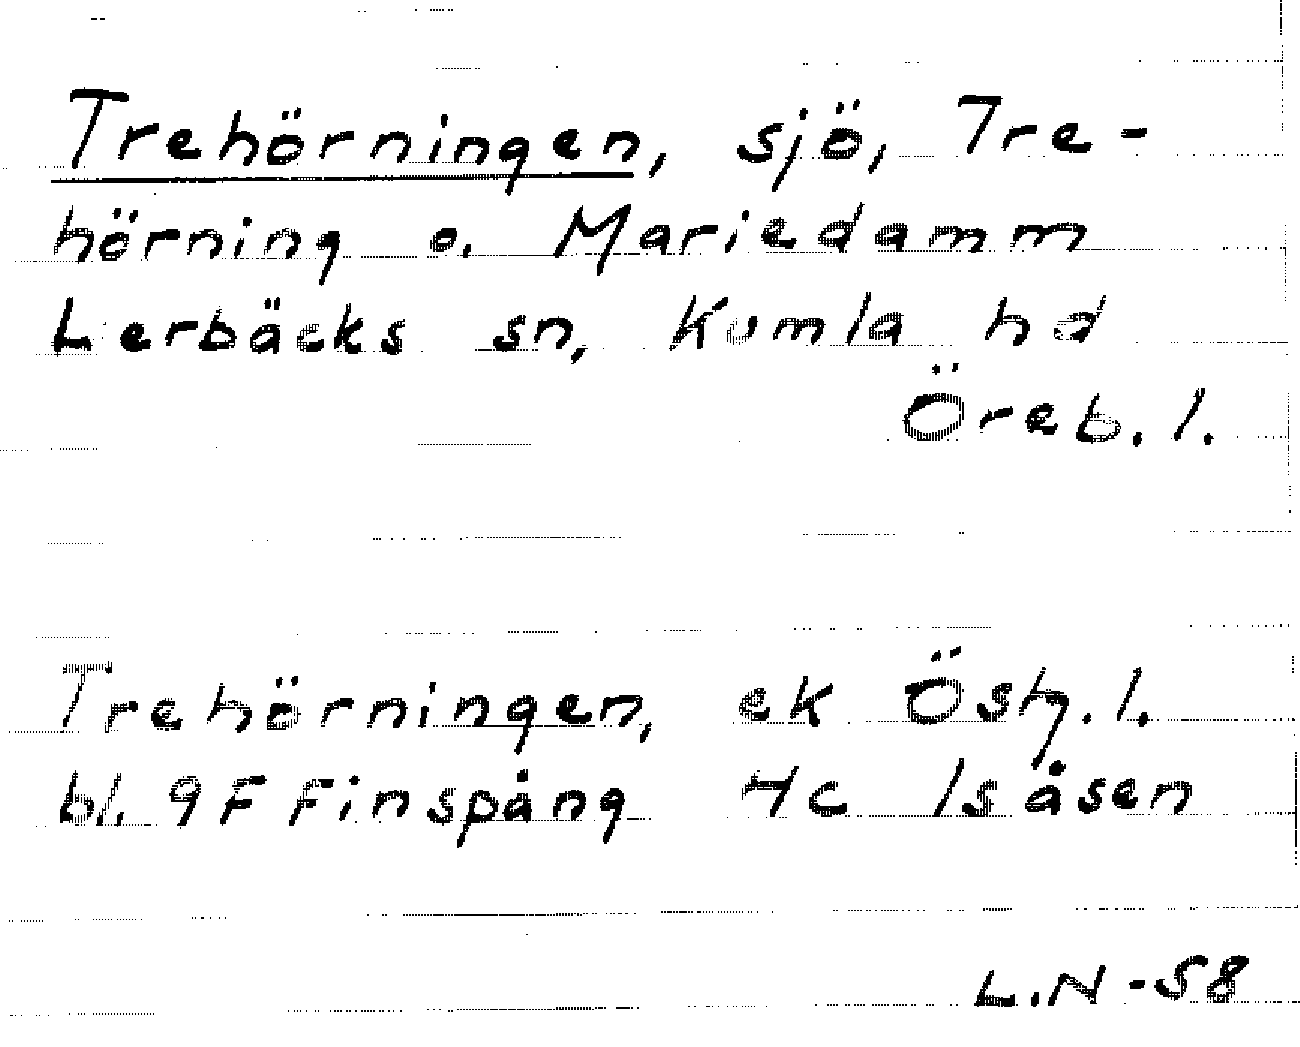 Trehörningen, sjö, Tre-
hörning o. Mariedamm
Lerbäcks sn, Kumla hd
Öreb. l.
Trehörningen, ek Östg. l.
bl. 9F Finspång 4c Isåsen
L.N -58